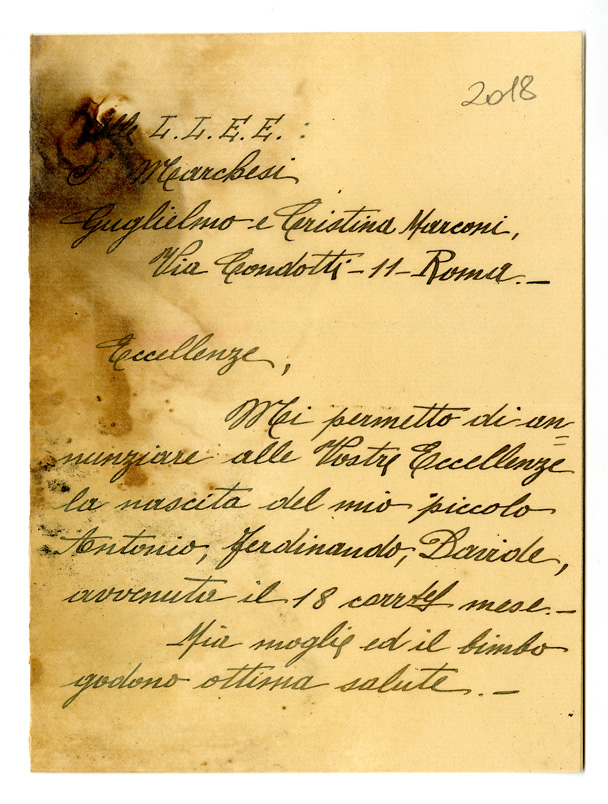 2018
Alle L.L.E.E.:
I Marchesi
Guglielmo e Cristina Marconi,
Via Condotti - 11 - Roma. -
Eccellenze,
Mi permetto di an=
nunziare alle Vostre Eccellenze
la nascita del mio piccolo
Antonio, Ferdinando, Davide,
avvenuta il 18 corr mese. -
Mia moglie ed il bimbo
godono ottima salute. -